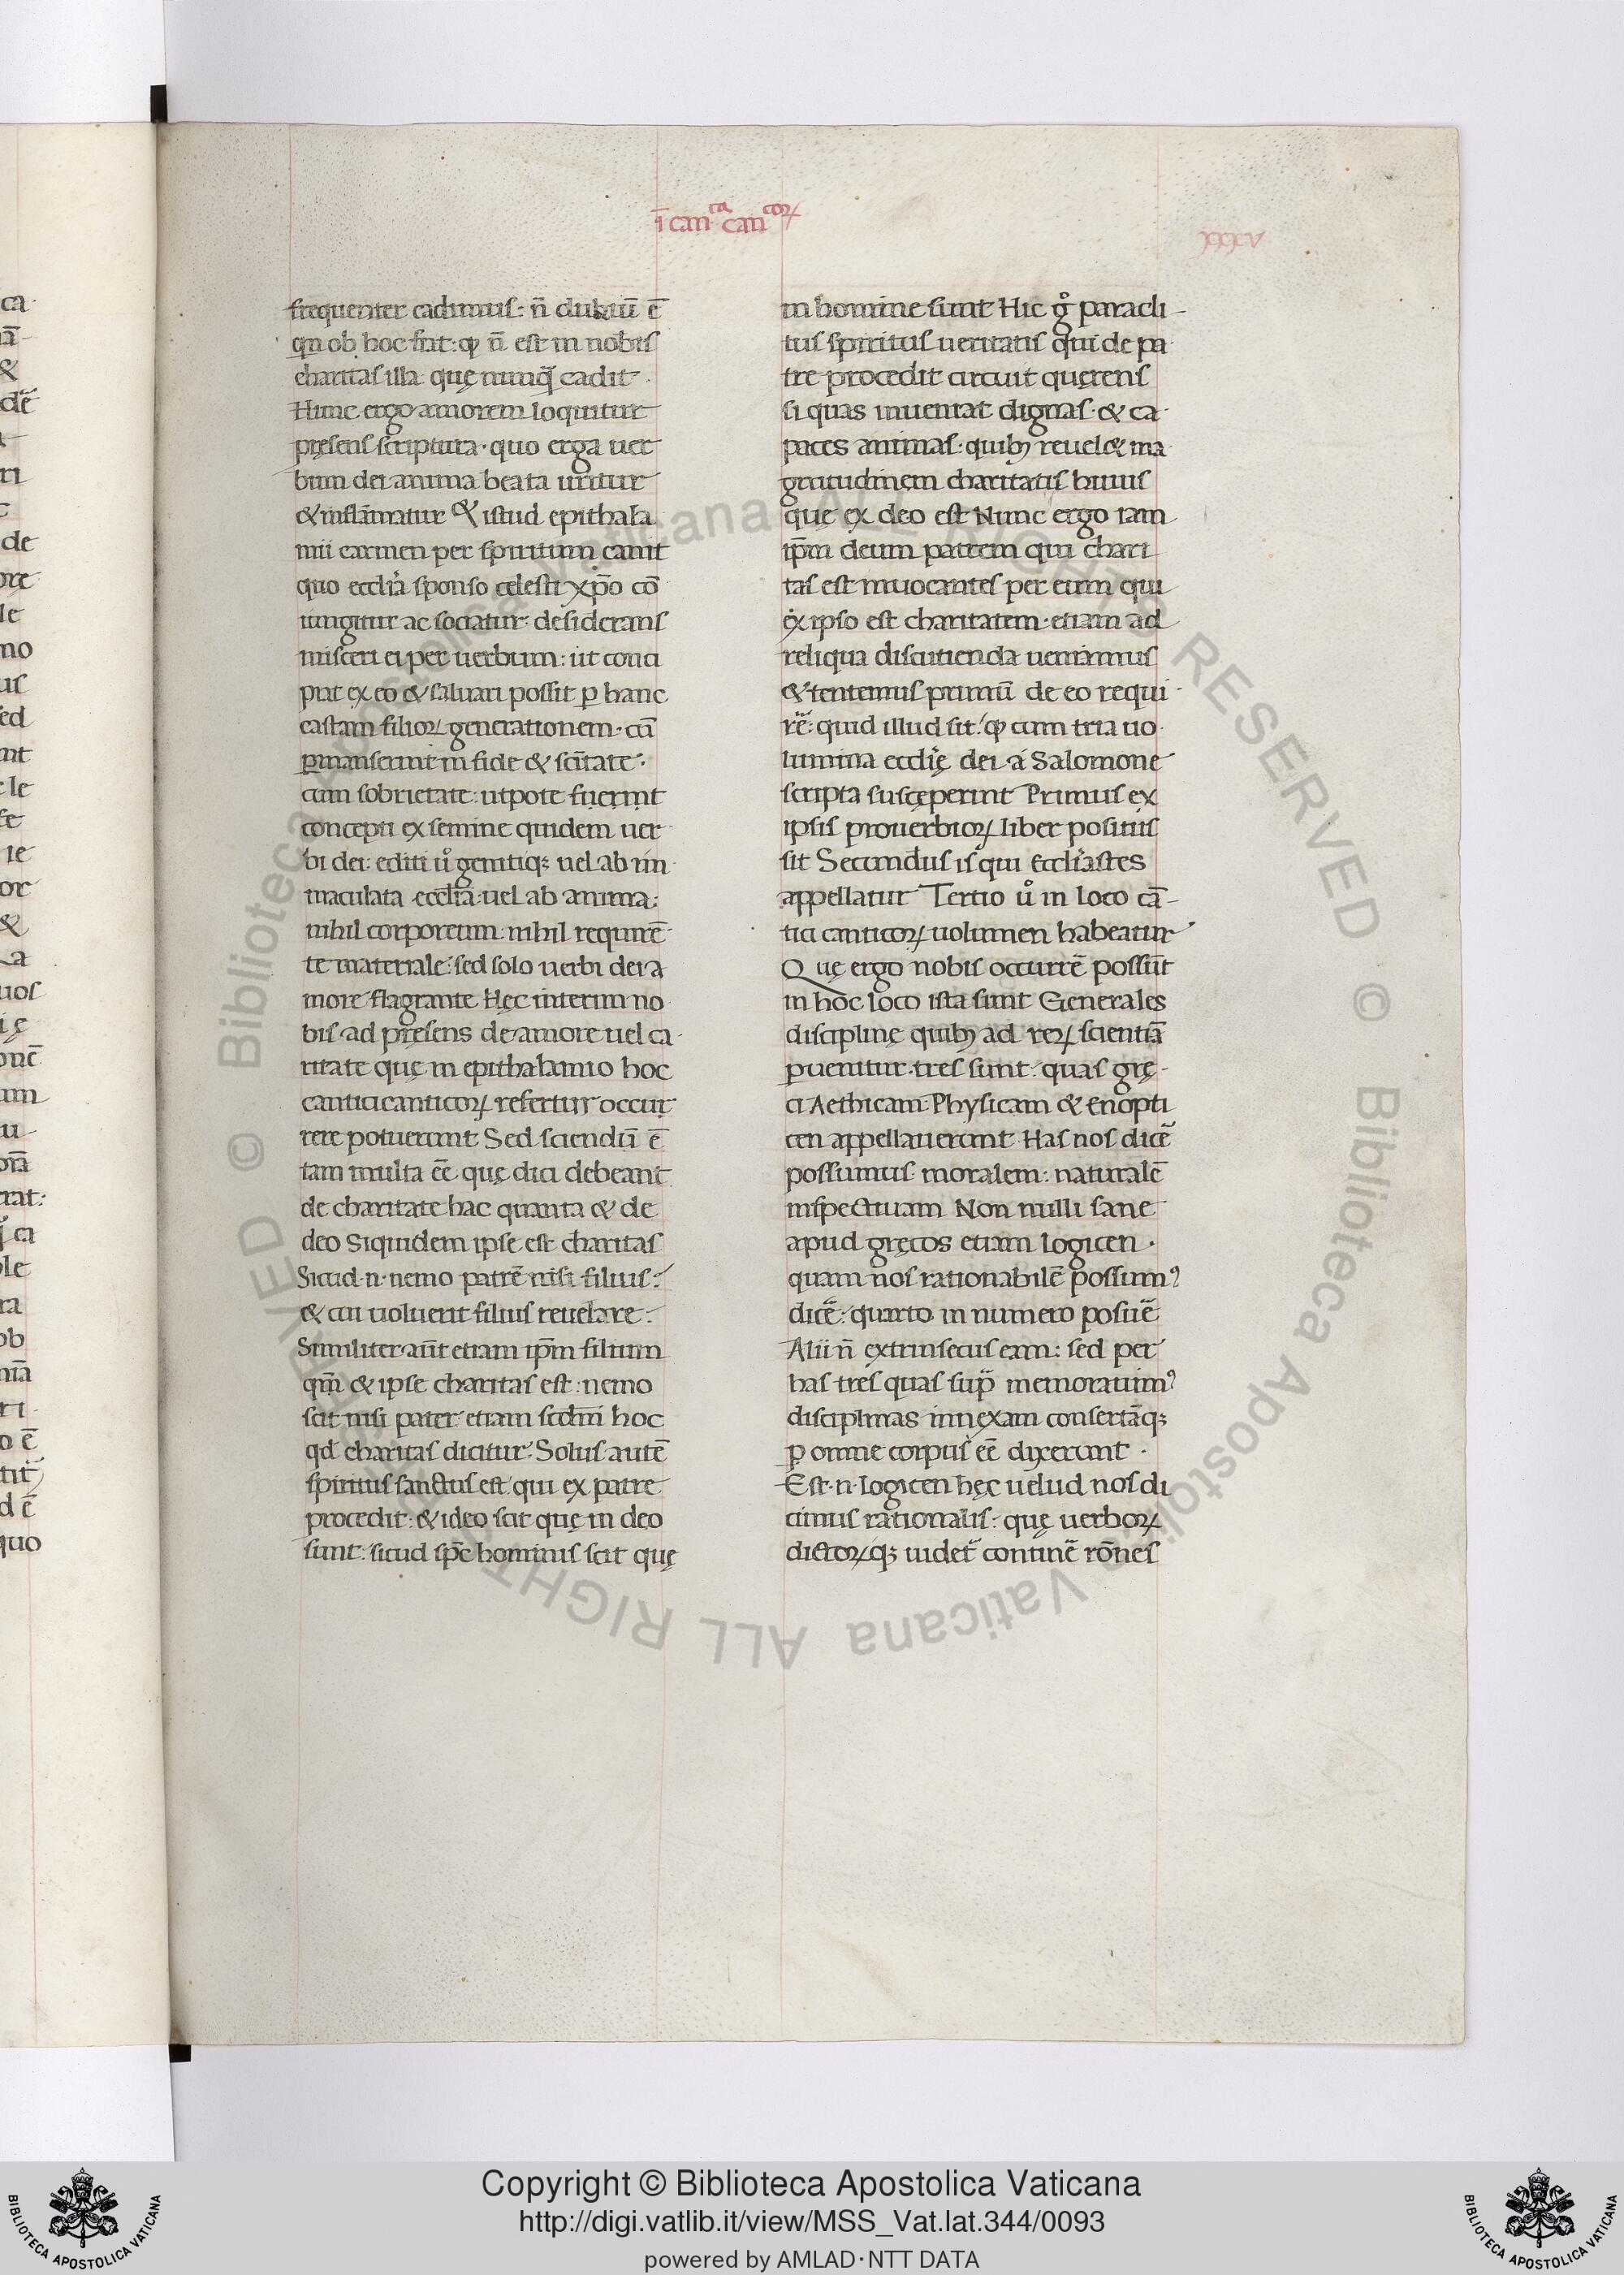 ī can^ta can^coꝝ
xxxv
frequenter cadimus: n̄ dubiū ē
qn ob hoc fiat: ꝙ n̄ est in nobis
charitas illa quę nunq̄ cadit·
Hunc ergo amorem loquitur
pręsens scriptura· quo erga uer
bum dei anima beata uritur
& inflāmatur & istud epithala
mii carmen per spiritum canit
quo eccl̄ia sponso celesti xp̄o cō
iungitur ac sociatur· desiderans
misceri ei per uerbum: ut conci
piat ex eo & saluari possit ꝑ hanc
castam filioꝝ generationem· cū
ꝑmanserint in fide & sc̄itate·
cum sobrietate: utpote fuerint
concepti ex semine quidem uer
bi dei: editi ů genitiqꝫ uel ab im
maculata eccl̄ia: uel ab anima:
nihil corporeum: nihil requirē
te materiale: sed solo uerbi dei a
more flagrante Hęc interim no
bis ad pręsens de amore uel ca·
ritate quę in epithalamio hoc
cantici canticoꝝ refertur occur
rere potuerunt Sed sciendū ē
tam multa eē quę dici debeant
de charitate hac quanta & de
deo Siquidem ipse est charitas
Sicud·n·nemo patrē nisi filius:
& cui uoluerit filius reuelare:
Similiter aūt etiam ip̄m filium
qm̄ & ipse charitas est: nemo
scit nisi pater etiam scdm̄ hoc
qd̄ charitas dicitur Solus autē
spiritus sanctus est qui ex patre
procedit: & ideo scit quę in deo
sunt: sicud sp̄c hominis scit quę
in homine sunt Hic g̊ paracli-
tus spiritus ueritatis qui de pa
tre procedit circuit quęrens
si quas inueniat dignas· & ca·
paces animas· quibꝫ reuel& ma
gnitudinem charitatis huius
quę ex deo est Nunc ergo iam
ip̄m deum patrem qui chari
tas est inuocantes per eum qui
ex ipso est charitatem· etiam ad
reliqua discutienda ueniamus
& tentemus primū de eo requi·
rē: quid illud sit· ꝙ cum tria uo·
lumina eccl̄ię dei a Salomone
scripta susceperint Primus ex
ipsis prouerbioꝝ liber positus
sit Secundus is qui Eccl̄iastes
appellatur Tertio ů in loco cā-
tici canticoꝝ uolumen habeatur
Quę ergo nobis occurrē possūt
in hoc loco ista sunt Generales
disciplinę quibꝫ ad reꝝ scientiā
ꝑuenitur· tres sunt· quas grę-
ci Aethicam· Physicam & Enopti
cen appellauerunt Has nos dicē
possumus moralem: naturalē
inspectiuam Non nulli sane
apud gręcos etiam logicen·
quam nos rationabilē possumꝰ
dicē: quarto in numero posuē
Alii n̄ extrinsecus eam: sed per
has tres quas sup̄ memorauimꝰ
disciplinas innexam consertāqꝫ
ꝑ omne corpus eē dixerunt·
Est·n·logicen hęc uelud nos di
cimus rationalis: quę uerboꝝ
dictoꝝqꝫ uidet̄ continē rōnes
ALL RIGHTS RESERVED © Biblioteca Apostolica Vaticana ALL RIGHTS RESERVED © Biblioteca Apostolica Vaticana
Copyright © Biblioteca Apostolica Vaticana
http://digi.vatlib.it/view/MSS_Vat.lat.344/0093
powered by AMLAD·NTT DATA
BIBLIOTECA APOSTOLICA VATICANA
BIBLIOTECA APOSTOLICA VATICANA